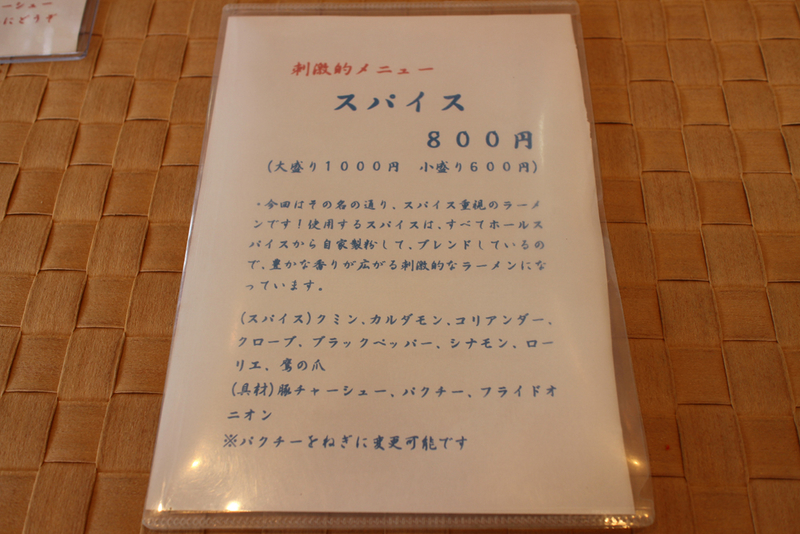 ーシュー
にどうぞ
刺激的メニュー
スパイス
８００円
(大盛り１０００円　小盛り６００円)
・今回はその名の通り、スパイス重視のラーメ
ンです！使用するスパイスは、すべてホールス
パイスから自家製粉して、ブレンドしているの
で、豊かな香りが広がる刺激的なラーメンにな
っています。
(スパイス)クミン、カルダモン、コリアンダー、
クローブ、ブラックペッパー、シナモン、ロー
リエ、鷹の爪
(具材)豚チャーシュー、パクチー、フライドオ
ニオン
※パクチーをねぎに変更可能です